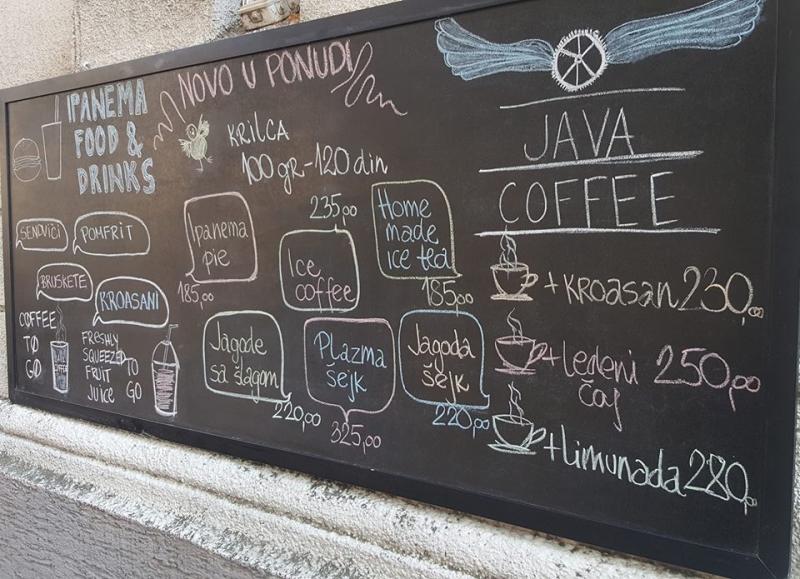 IPANEMA
FOOD &
DRINKS
SENDVIČI
POMFRIT
BRUSKETE
KROASANI
COFFEE
TO
GO
FRESHLY
SQUEEZED
FRUIT TO
JUICE GO
NOVO U PONUDI
KRILCA
100gr-120 din
Ipanema
pie
185,00
235,00
Ice
coffee
Home
made
ice tea
185,00
Jagode
sa šlagom
220,00
Plazma
šejk
325,00
Jagoda
šejk
220,00
JAVA
COFFEE
+ KROASAN 230,00
+ Ledeni 250,00
čaj
+ Limunada 280,00